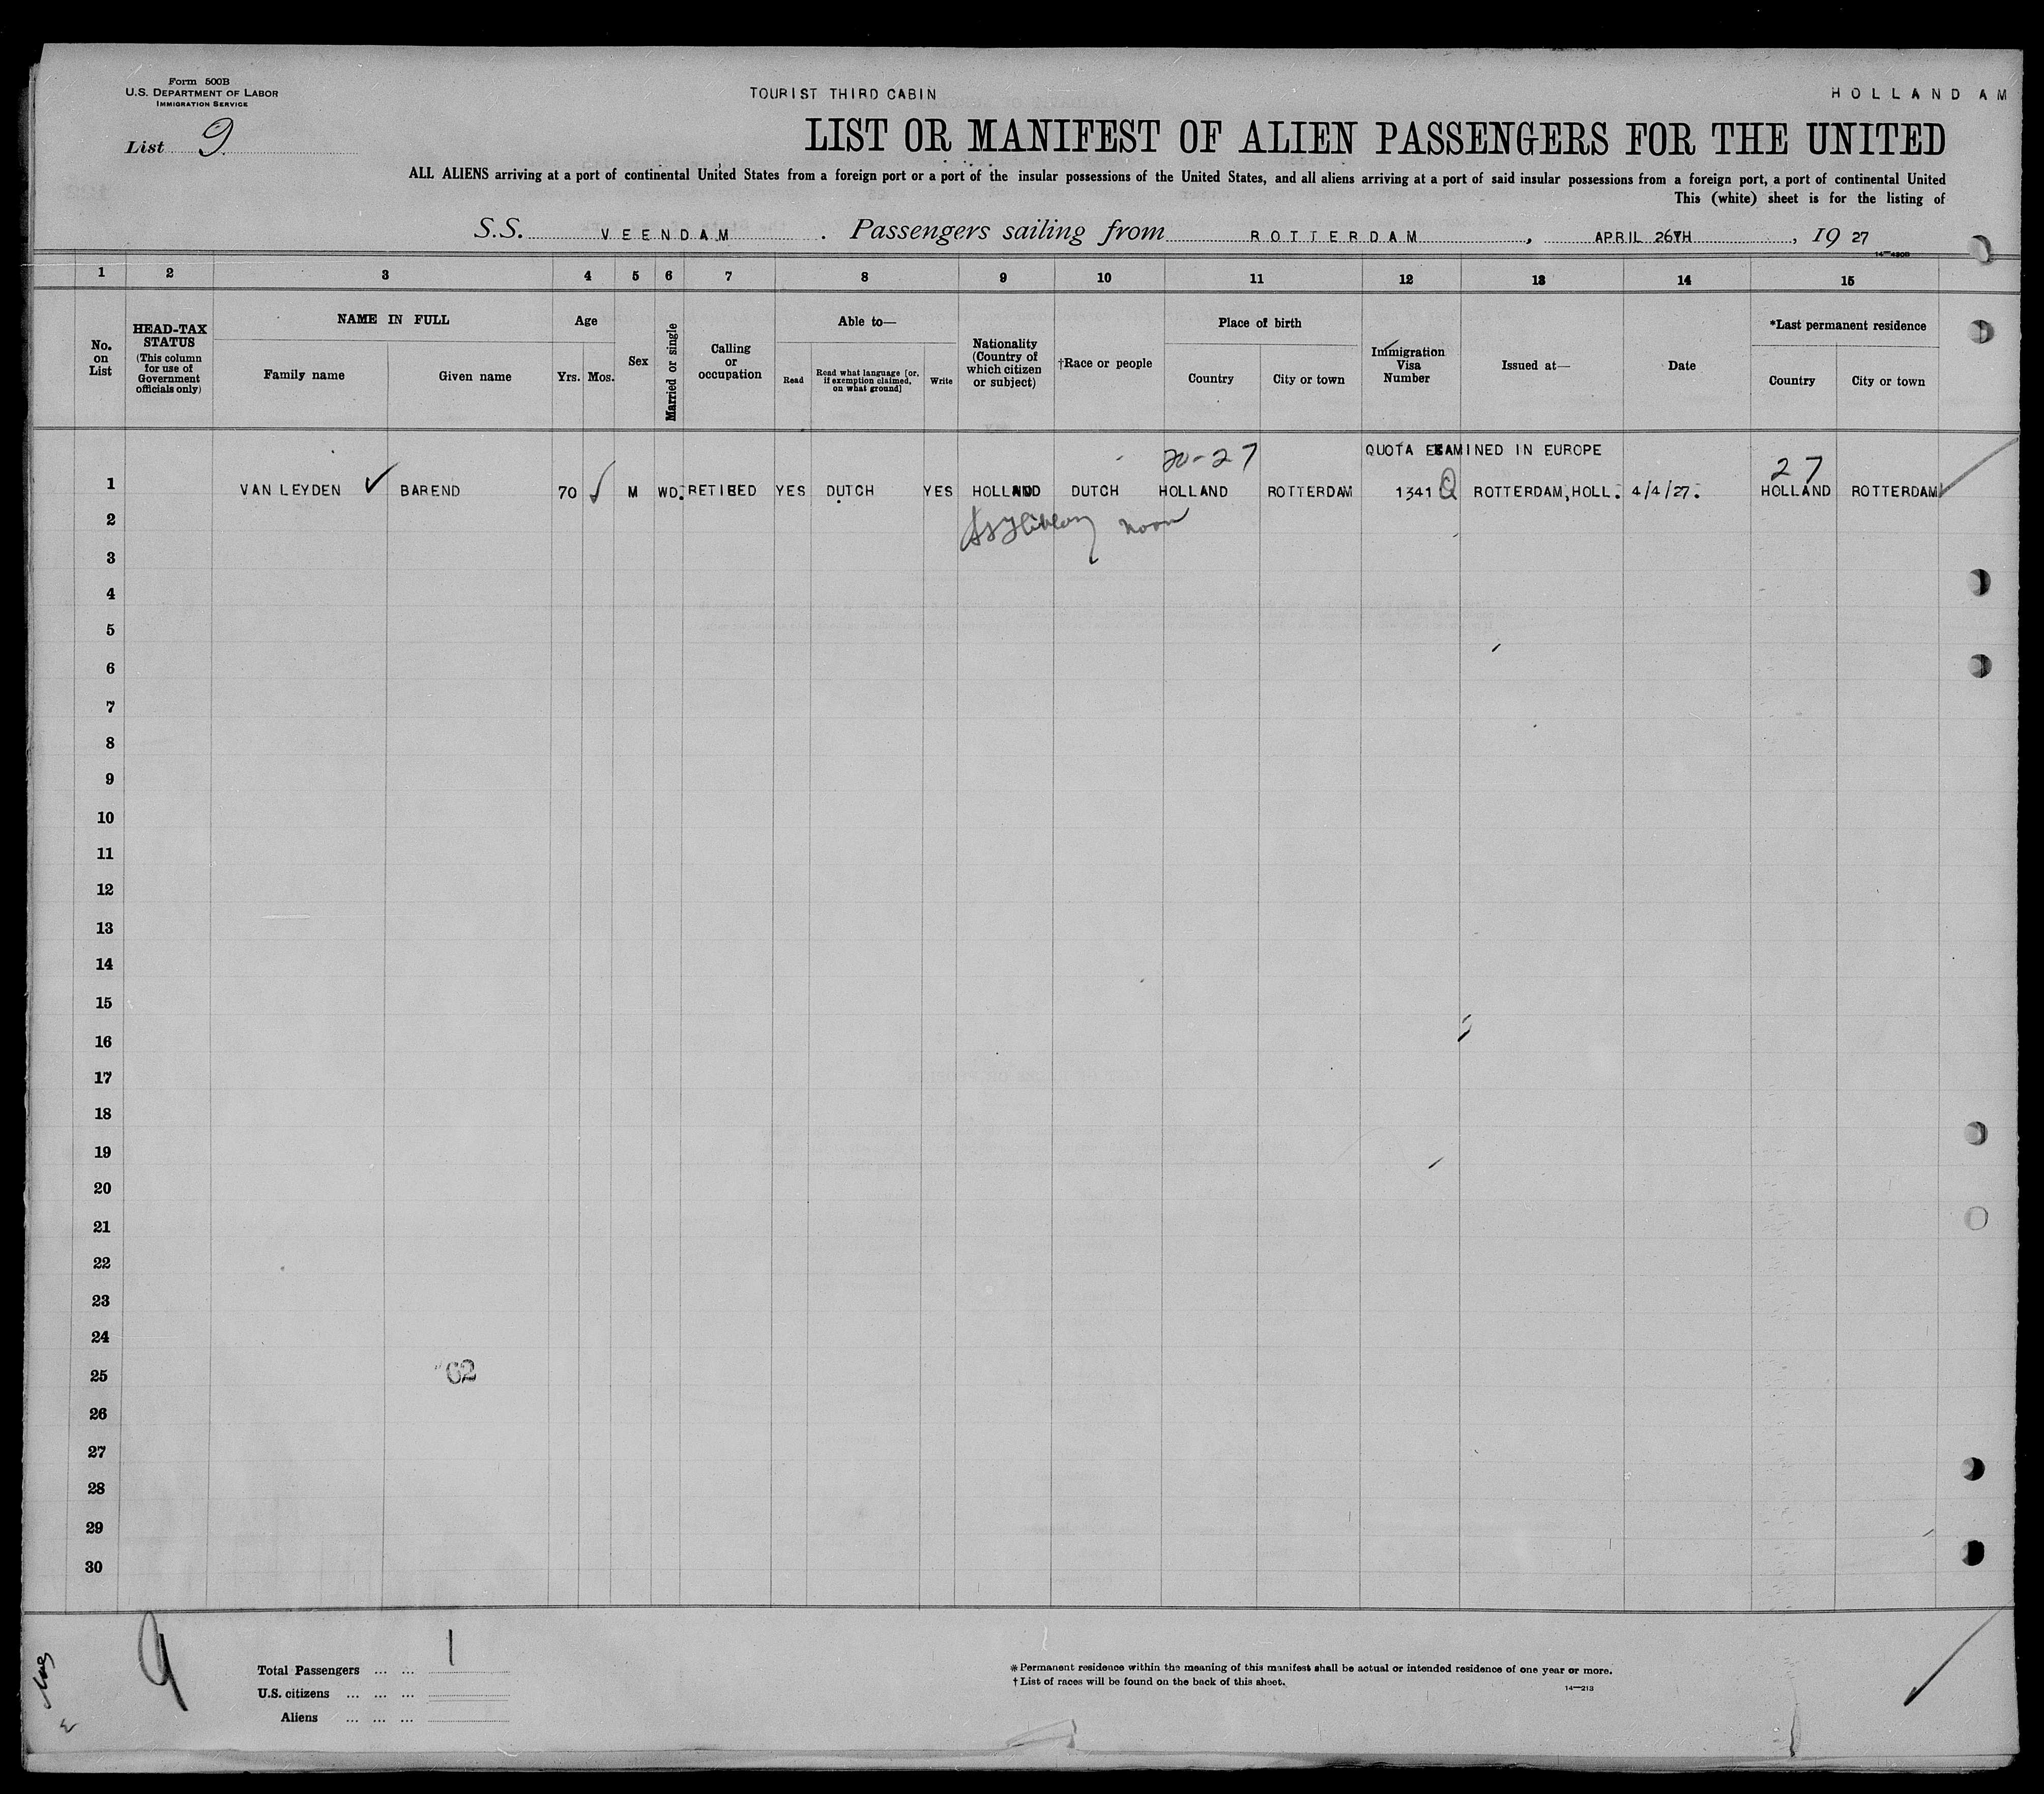 Form 500B
U.S. DEPARTMENT OF LABOR
IMMIGRATION SERVICE
TOURIST THIRD CABIN
HOLLAND AM
List 9
LIST OR MANIFEST OF ALIEN PASSENGERS FOR THE UNITED
ALL ALIENS arriving at a port of continental United States from a foreign port or a port of the insular possessions of the United States, and all aliens arriving at a port of said insular possessions from a foreign port, a port of continental United
This (white) sheet is for the listing of
S.S. VEENDAM. Passengers sailing from ROTTERDAM, APRIL 26TH, 19 27
1 2 3 4 5 6 7 8 9 10 11 12 13 14 15
No. on List
HEAD-TAX STATUS (This column for use of Government officials only)
NAME IN FULL
Family name Given name
Age
Yrs. Mos.
Sex
Married or single
Calling or occupation
Able to—
Read
Read what language [or, if exemption claimed, on what ground]
Write
Nationality (Country of which citizen or subject)
†Race or people
Place of birth
Country City or town
Immigration Visa Number
Issued at—
Date
*Last permanent residence
Country City or town
QUOTA EXAMINED IN EUROPE
20-27 27
1 VAN LEYDEN BAREND 70 M WD. RETIRED YES DUTCH YES HOLLAND DUTCH HOLLAND ROTTERDAM 1341 Q ROTTERDAM, HOLL. 4/4/27. HOLLAND ROTTERDAM
2 noon
3
4
5
6
7
8
9
10
11
12
13
14
15
16
17
18
19
20
21
22
23
24
25 62
26
27
28
29
30
9
Total Passengers ... ... 1
U.S. citizens ... ... ...
Aliens ... ... ...
*Permanent residence within the meaning of this manifest shall be actual or intended residence of one year or more.
†List of races will be found on the back of this sheet.
14—213